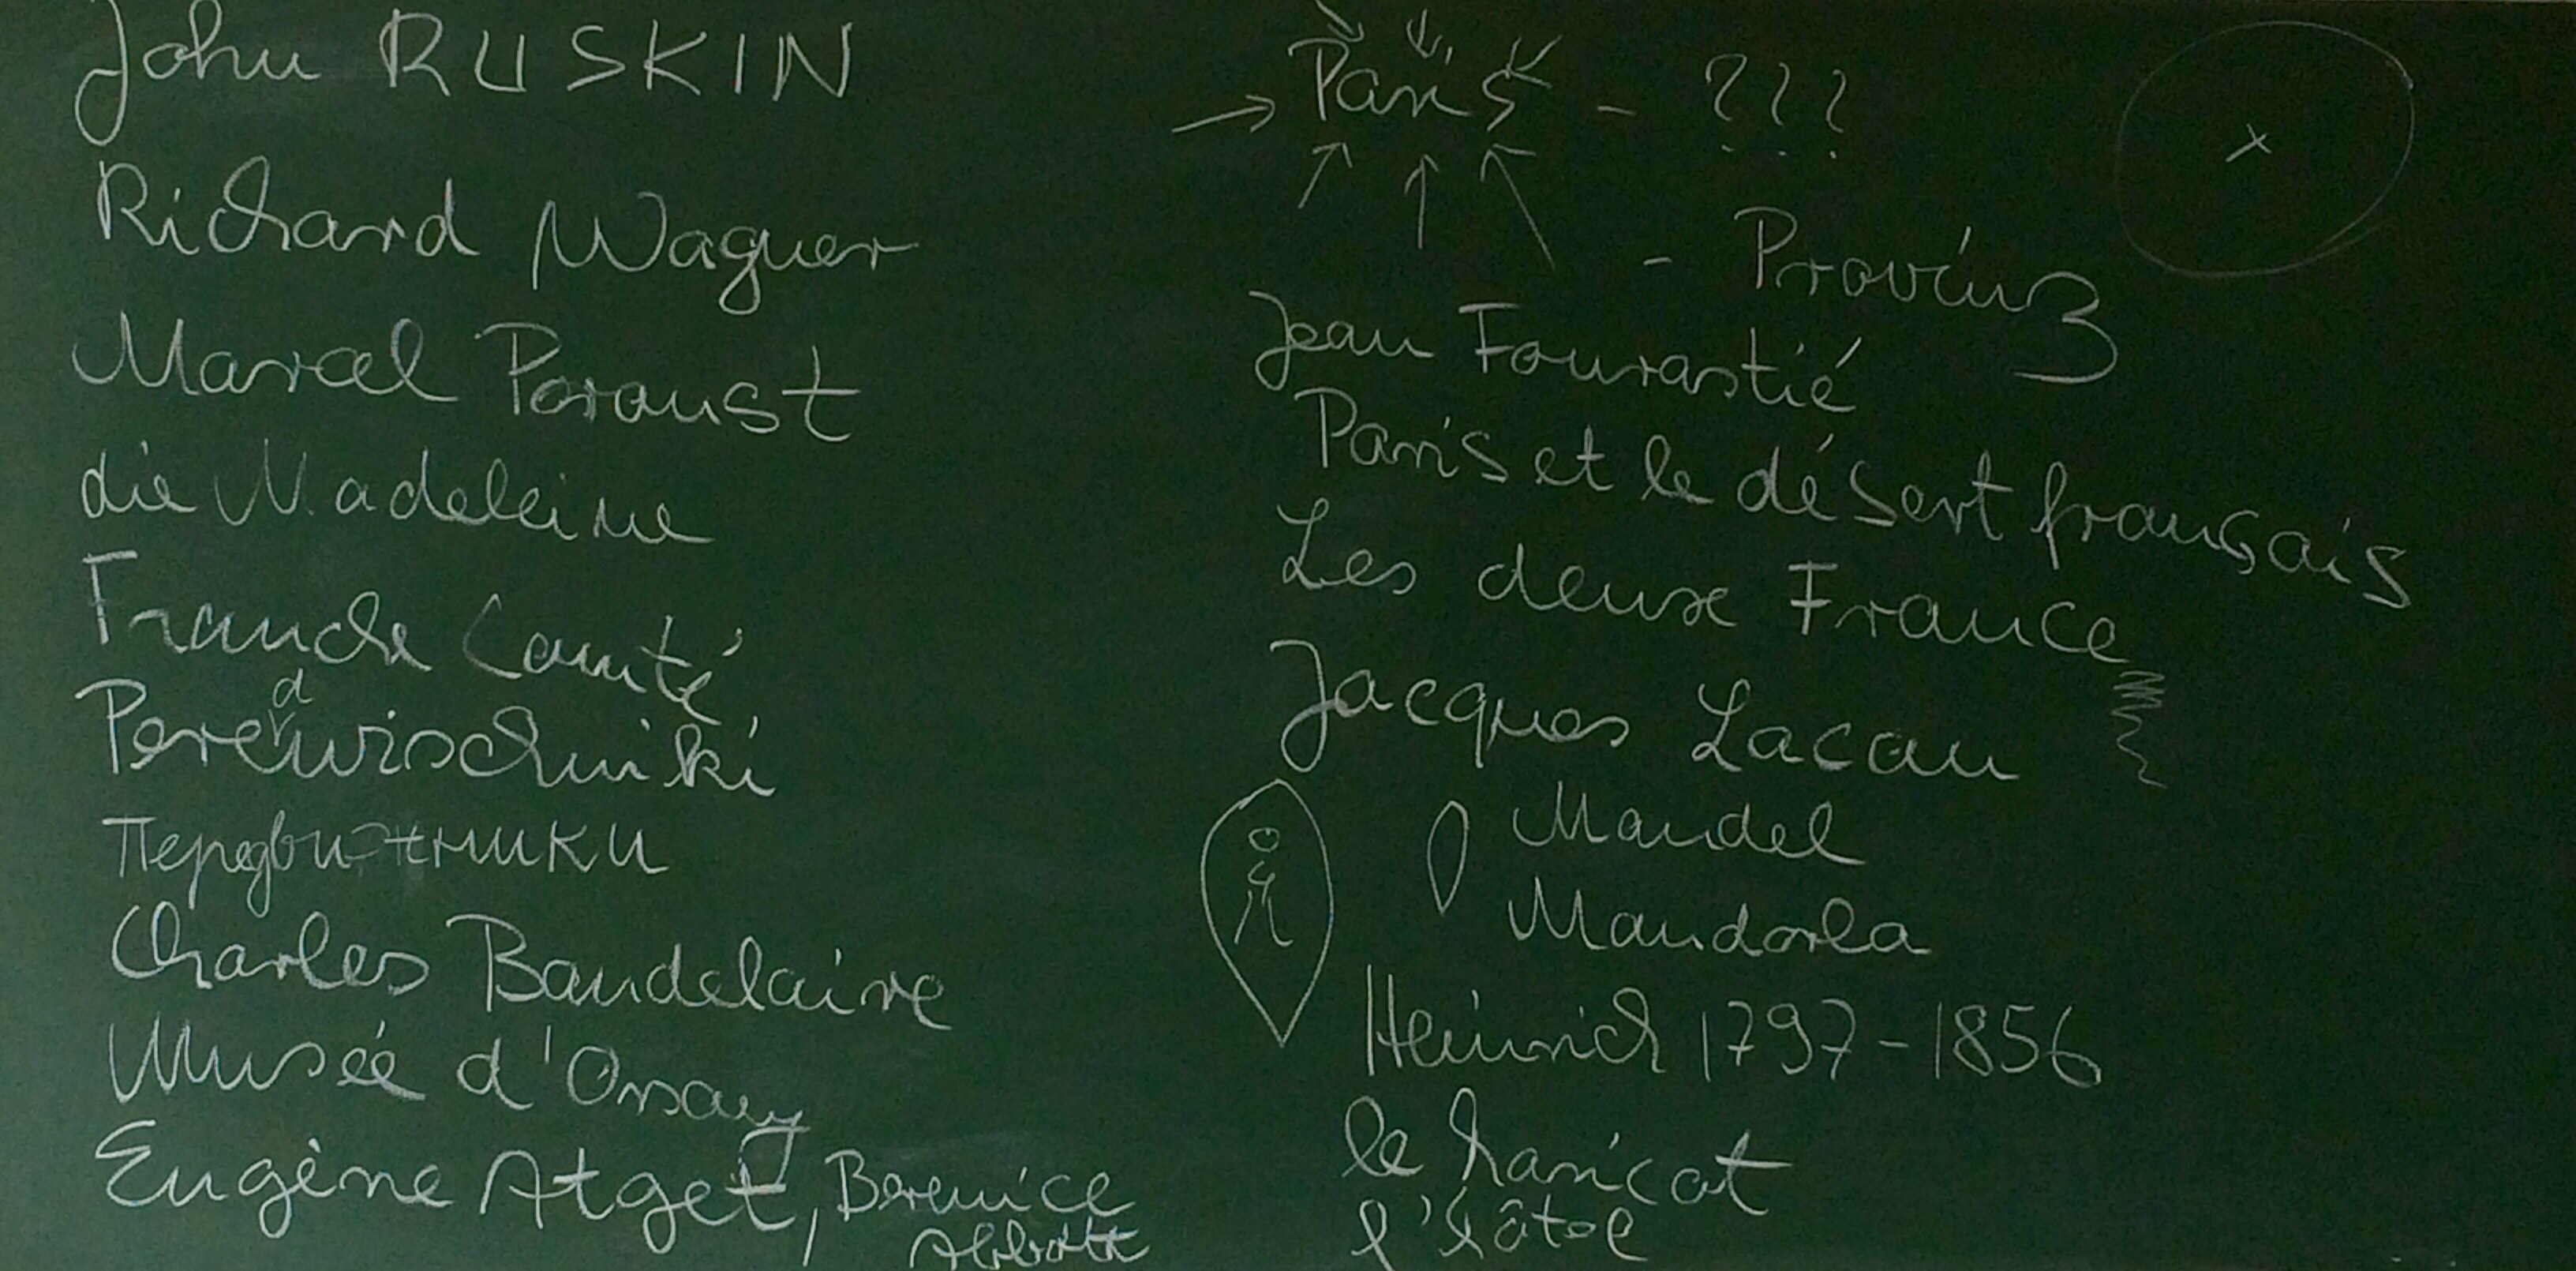 John RUSKIN
Richard Wagner
Marcel Proust
die Madeleine
Franche Comté
Peredwischniki
Передвижники
Charles Baudelaire
Musée d'Orsay
Eugène Atget, Berenice
Abbott
Paris - ???
- Provinz
Jean Fourastié
Paris et le désert français
Les deux France
Jacques Lacan
Mandel
Mandorla
Heinrich 1797-1856
le haricot
l'hôtel